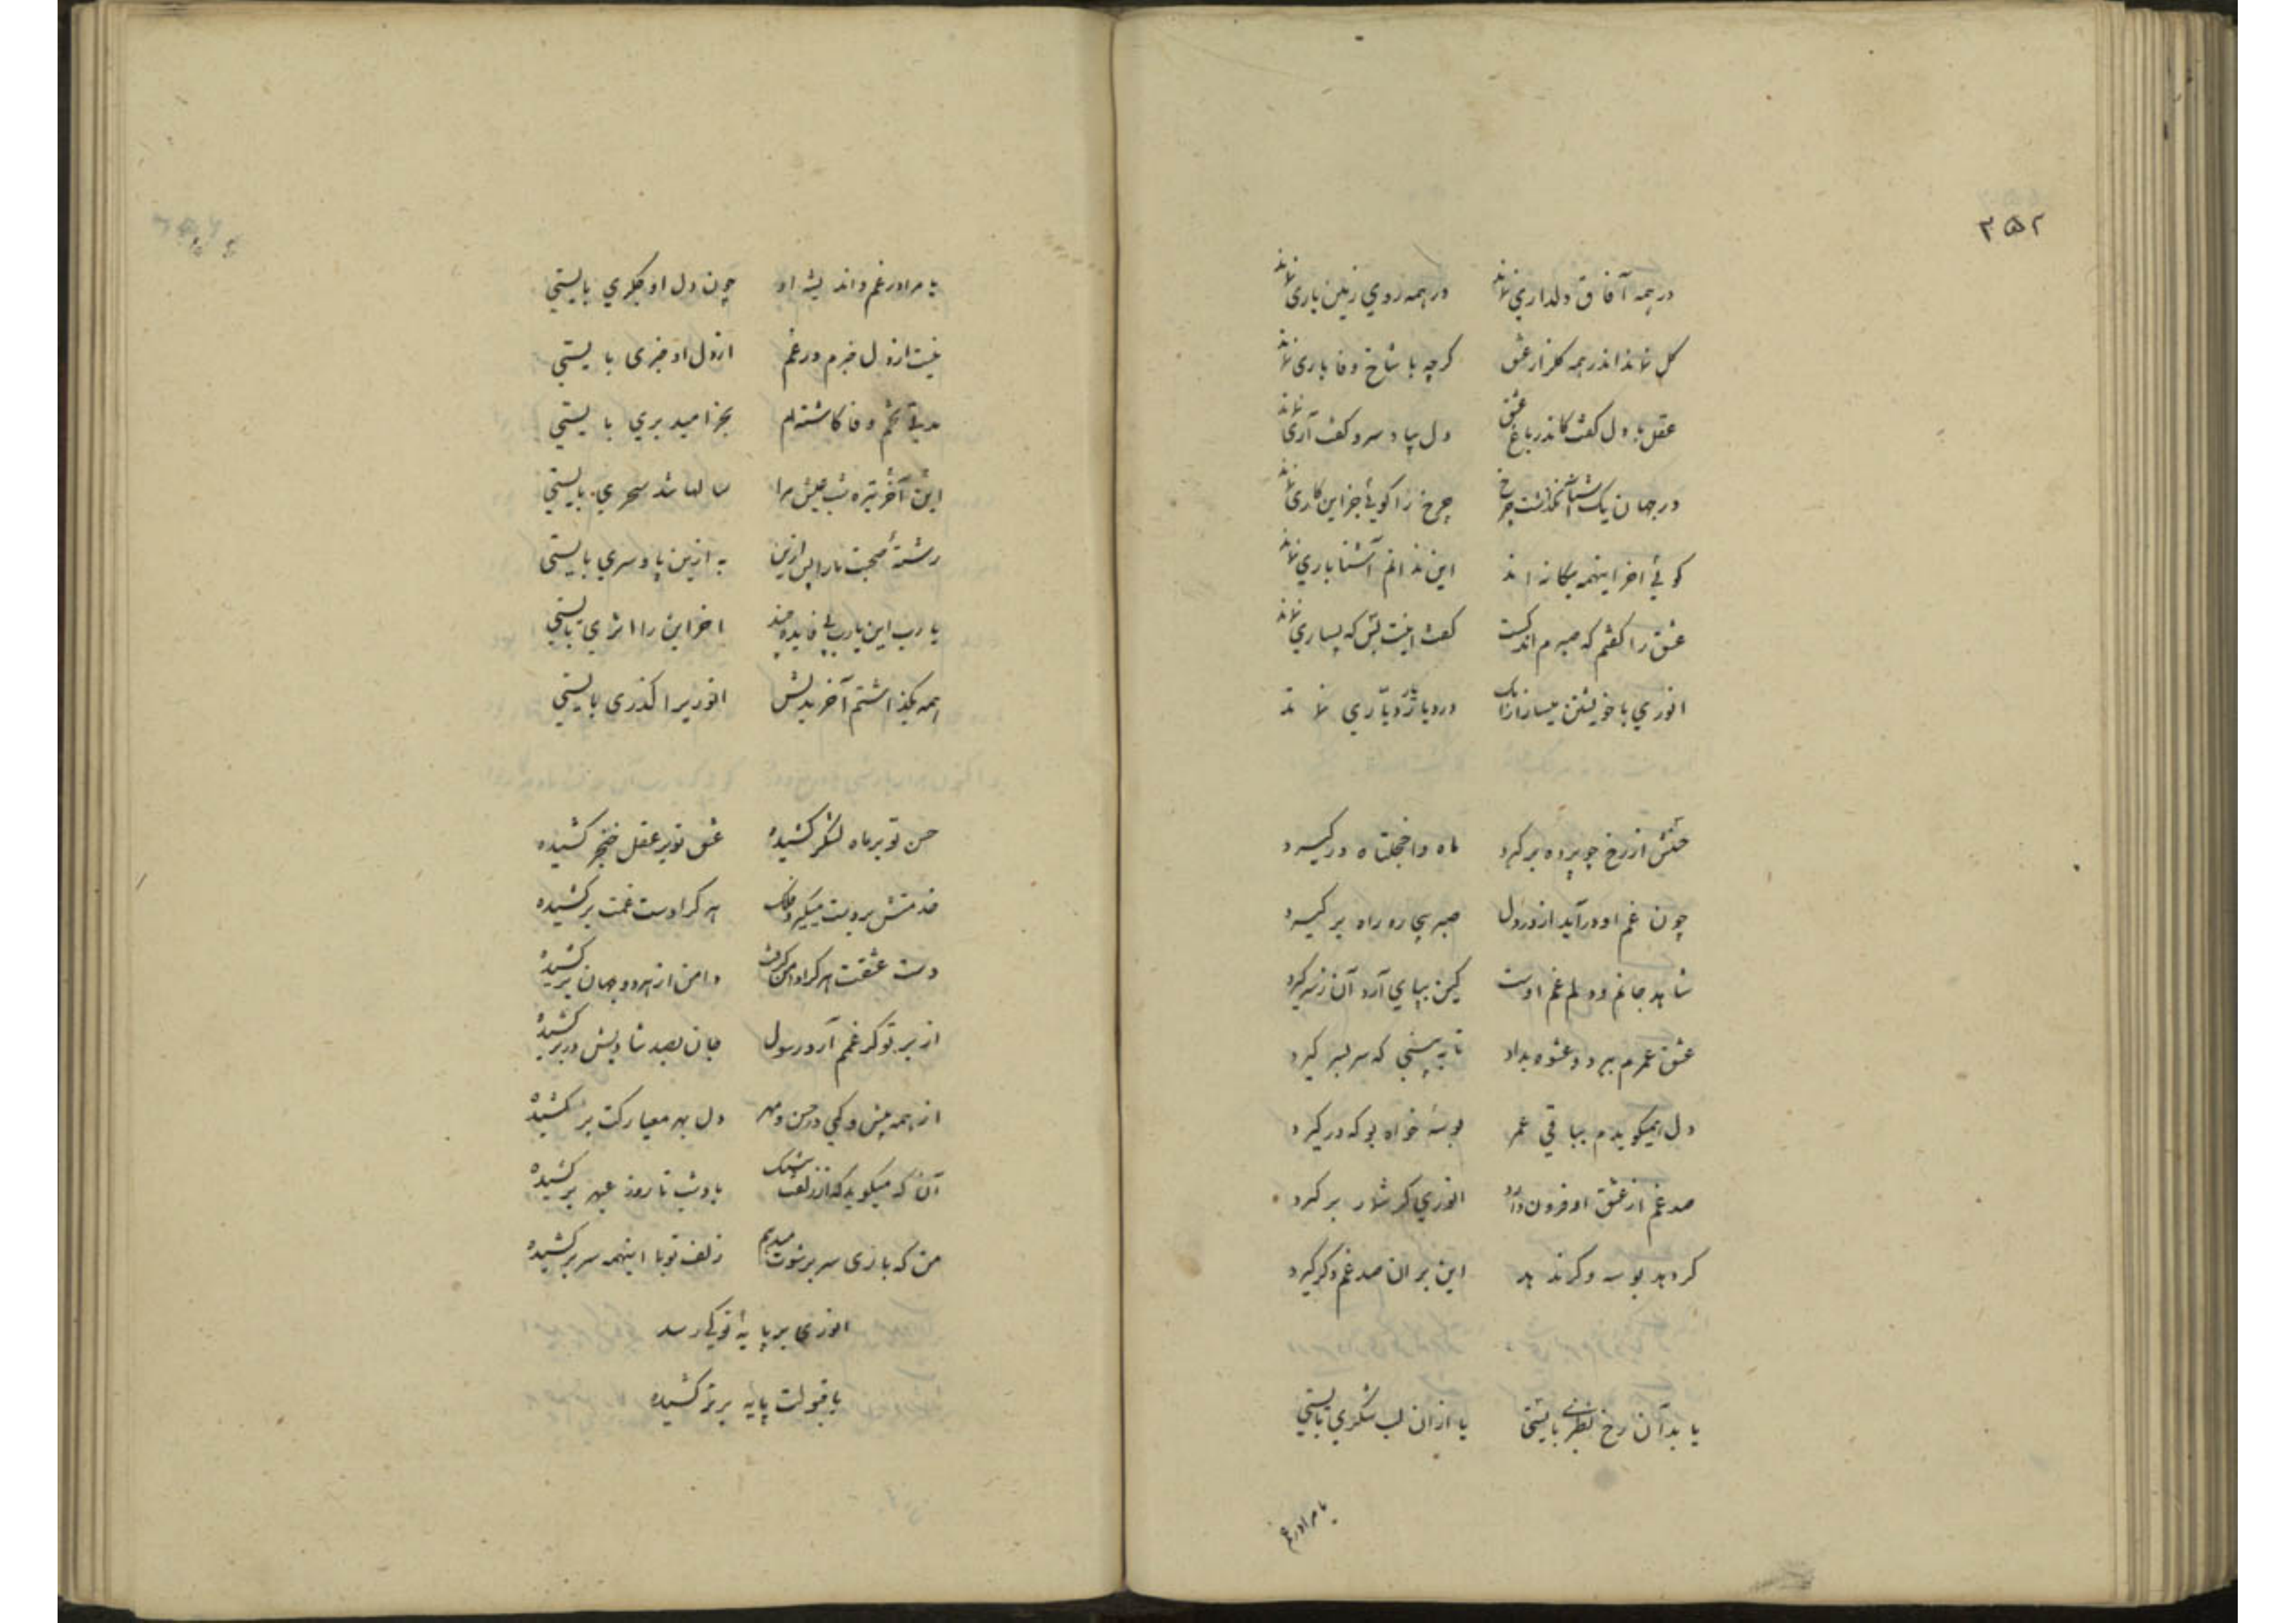 ۳۵۲
در همه آفاق دلداری نماند در همه روی زمین یاری نماند
گل نماند اندر همه گلزار عشق گرچه با شاخ وفا باری نماند
عقل با دل گفت کاندر باغ عشق دل بپا و سر و کفت آری نماند
در جهان یک آشنا نگذاشت چرخ چرخ را گویی جز این کاری نماند
گویی آخر اینهمه بیگانه اند این ندانم آشنا باری نماند
عشق را گفتم که صبرم اندکست گفت اینت بس که بسیاری نماند
انوری با خویشتن میساز ازانک در دیار یار دیاری نماند
حسنش از رخ چو پرده برگیرد ماه واخجلتاه درگیرد
چون غم او درآید از در دل صبر بیچاره راه برگیرد
شاهد جانم و دلم غم اوست کین بپای آرد آن ز سر گیرد
عشق عمرم ببرد و عشوه بداد تا به بینی که سر بسر گیرد
دل همیگویدم بباقی عمر بوسه خواه بو که درگیرد
صد غم از عشق او فزون دارد انوری گر شمار برگیرد
گر دهد بوسه وگر ندهد این بر ان صد غم دگر گیرد
یا بدآن رخ نظری بایستی یا ازان لب شکری بایستی
یا مرا در غم
یا مرا در غم و اندیشه او چون دل او جگری بایستی
نیست از دل خبرم در غم از دل او خبری بایستی
مدتی تخم وفا کاشته‌ام بجز امید بری بایستی
این آخر تیره شب عیش مرا سالها شد سحری بایستی
رشتهٔ صحبت ما را پس ازین به ازین پا و سری بایستی
یا رب این یارب بی فایده چند اخر این را اثری بایستی
همه بگذاشتم آخر بدلش انوری را گذری بایستی
حسن تو بر ماه لشکر کشیده عشق تو بر عقل خنجر کشیده
خدمتش بر دست میگیرد فلک هر کرا دست غمت برکشیده
دست عشقت هر کرا دامن گرفت دامن از هر دو جهان برکشیده
از بر تو گر غمم آرد رسول جان بصد شادیش در بر کشیده
از همه بیش و کمی در حسن و مهر دل بهر معیارکت برکشیده
آن که میگوید که از زلف بادشت تا روز عنبر کشیده
من که بازی سر برشوت میدهم زلف تو با اینهمه سر برکشیده
انوری بر پایهٔ تو کی رسد
با قبولت پایه برتر کشیده